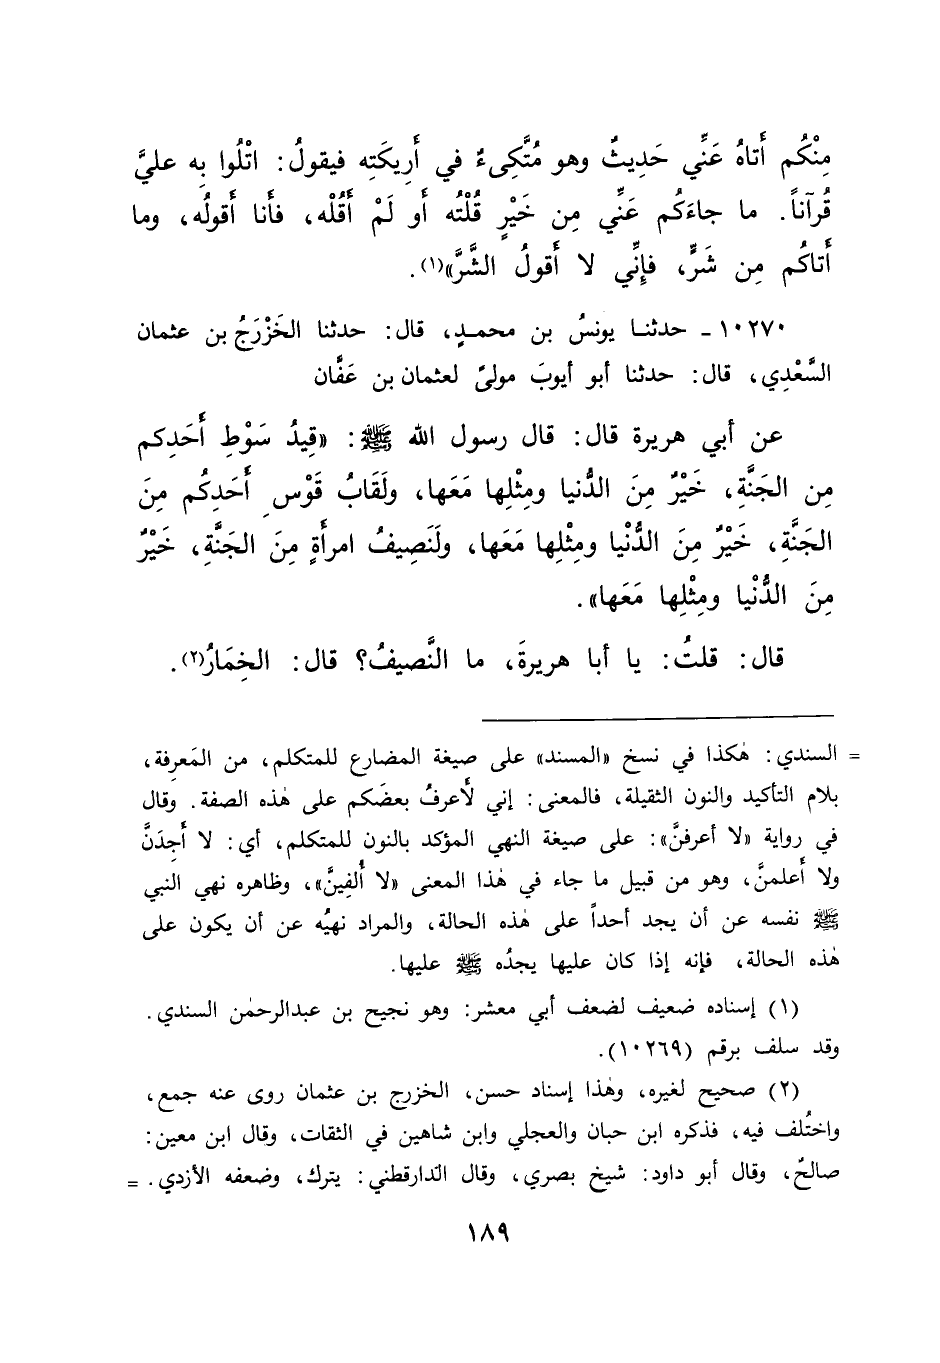 مِنْكُم أَتاهُ عَنِّي حَدِيثٌ وهو مُتَّكِىءٌ في أَرِيكَتِه فيقولُ: اتْلُوا بِه عليَّ
قُرآناً. ما جاءَكُم عَنِّي مِن خَيْرٍ قُلْتُه أو لَمْ أَقُلْه، فأَنا أَقولُه، وما
أَتاكُم مِن شَرٍّ، فإِنِّي لا أَقولُ الشَّرَّ»(١).
١٠٢٧٠ ـ حدثنـا يونسُ بن محمـدٍ، قال: حدثنا الخَزْرَجُ بن عثمان
السَّعْدِي، قال: حدثنا أبو أيوبَ مولىً لعثمان بن عَفَّان
عن أبي هريرة قال: قال رسول الله ﷺ: «قِيدُ سَوْطِ أَحَدِكم
مِن الجَنَّةِ، خَيْرٌ مِنَ الدُّنيا ومِثْلِها مَعَها، ولَقَابُ قَوْسِ أَحَدِكُم مِنَ
الجَنَّةِ، خَيْرٌ مِنَ الدُّنْيا ومِثْلِها مَعَها، ولَنَصِيفُ امرأَةٍ مِنَ الجَنَّةِ، خَيْرٌ
مِنَ الدُّنْيا ومِثْلِها مَعَها».
قال: قلتُ: يا أبا هريرةَ، ما النَّصيفُ؟ قال: الخِمَارُ(٢).
= السندي: هٰكذا في نسخ «المسند» على صيغة المضارع للمتكلم، من المَعرِفة،
بلام التأكيد والنون الثقيلة، فالمعنى: إني لَأعرفُ بعضَكم على هٰذه الصفة. وقال
في رواية «لا أعرفنَّ»: على صيغة النهي المؤكد بالنون للمتكلم، أي: لا أَجِدَنَّ
ولا أَعلمنَّ، وهو من قبيل ما جاء في هٰذا المعنى «لا أُلفِينَّ»، وظاهره نهي النبي
ﷺ نفسه عن أن يجد أحداً على هٰذه الحالة، والمراد نهيُه عن أن يكون على
هٰذه الحالة، فإنه إذا كان عليها يجدُه ﷺ عليها.
(١) إسناده ضعيف لضعف أبي معشر: وهو نجيح بن عبدالرحمٰن السندي.
وقد سلف برقم (١٠٢٦٩).
(٢) صحيح لغيره، وهٰذا إسناد حسن، الخزرج بن عثمان روى عنه جمع،
واختُلف فيه، فذكره ابن حبان والعجلي وابن شاهين في الثقات، وقال ابن معين:
صالحٌ، وقال أبو داود: شيخ بصري، وقال الدارقطني: يترك، وضعفه الأزدي. =
١٨٩